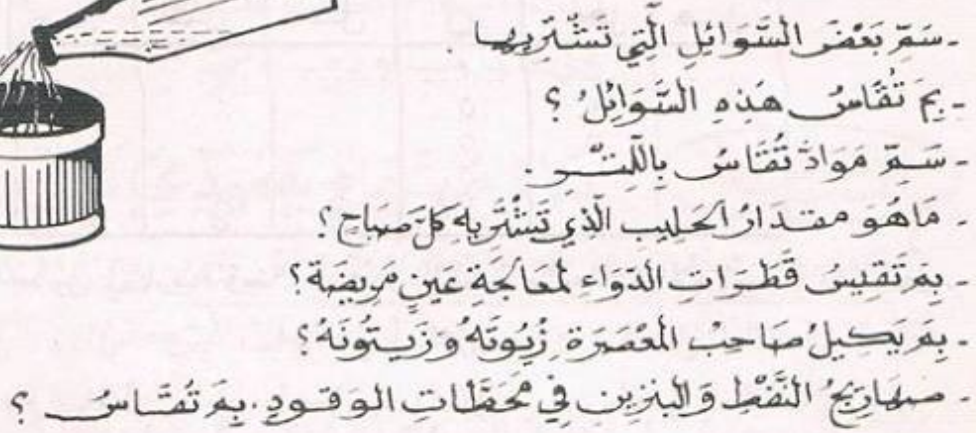 - سَمِّ بَعْضَ السَّوَائِلِ الَّتِي تَشْتَرِيهَا .
- بِمَ تُقَاسُ هَذِهِ السَّوَائِلُ ؟
- سَمِّ مَوَادَّ تُقَاسُ بِاللِّتْرِ .
- مَاهُوَ مقدَارُ الحَلِيبِ الَّذِي تَشْتَرِيهِ كلَّ صبَاحٍ ؟
- بِمَ تَقِيسُ قَطَرَاتِ الدَّوَاءِ لمُعَالَجَةِ عَيْنٍ مَرِيضَة ؟
- بِمَ يَكيلُ صَاحبُ المعْصَرَةِ زُيُوتَهُ وَ زَيتُونَهُ ؟
- صهَارِيجُ النَّفْطِ وَ البنزِين فِي مَحَطَّاتِ الوَقُودِ . بِمَ تُقَاسُ ؟